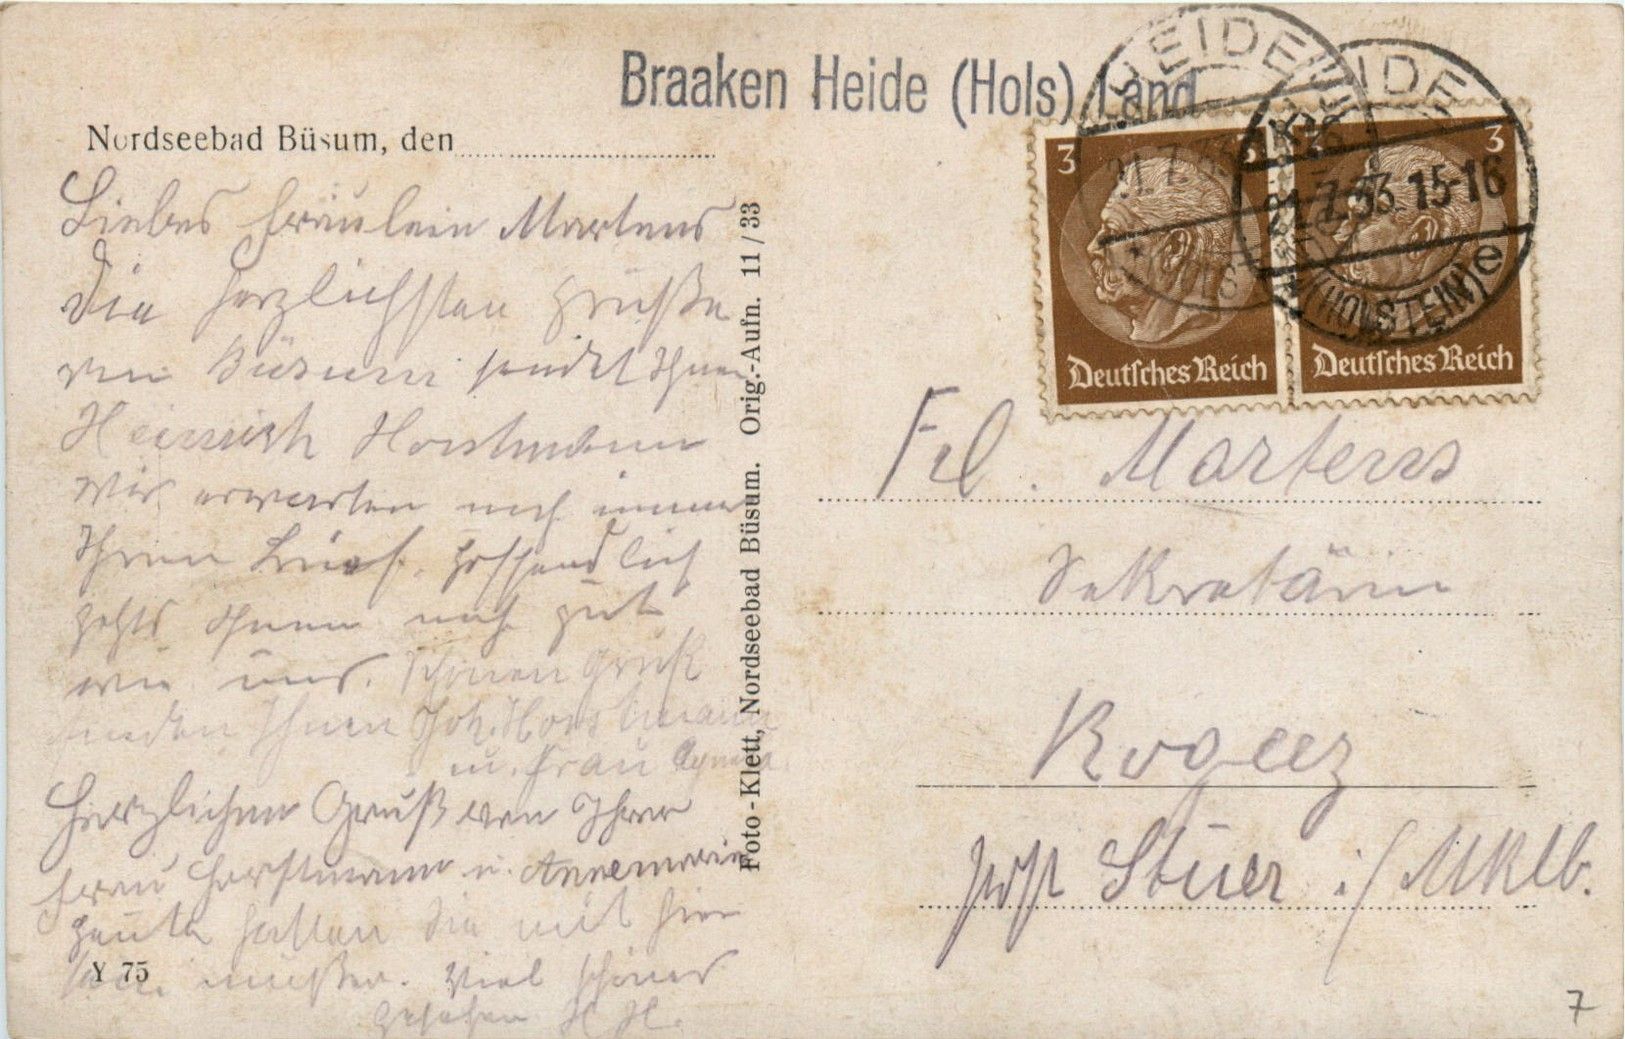 Braaken Heide (Hols) Land
Nordseebad Büsum, den
Liebes Fräulein Martens
Die herzlichsten Grüße
von Büsum sendet Ihnen
Heinrich Horstmann
Wir erwarten noch immer
Ihren Brief. Hoffendlich
gehts Ihnen noch gut
wie uns. Schönen Gruß
senden Ihnen Joh. Horstmann
u. Frau
Herzlichen Gruß von Ihrer
Frau Horstmann u. Annemarie
Heute hätten Sie mit hier
sein müßen. Viel schönes
gesehen H. H.
Y 75
Foto-Klett, Nordseebad Büsum. Orig.-Aufn. 11/33
HEIDE
21.7.33
HEIDE
21.7.33.15-16
(HOLSTEIN) e
3
Deutsches Reich
3
Deutsches Reich
Frl. Martens
Sekretärin
Rogeez
Post Stuer i/Mklb.
7